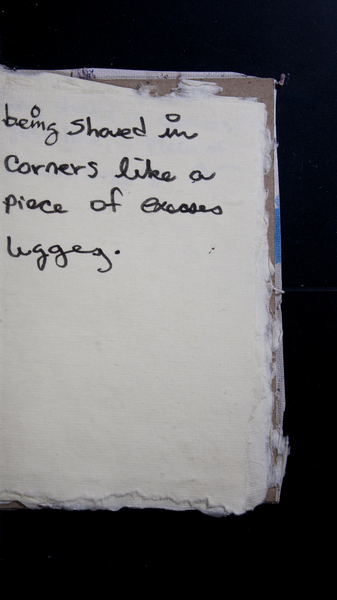 being shoved in
corners like a
piece of excess
luggeg.